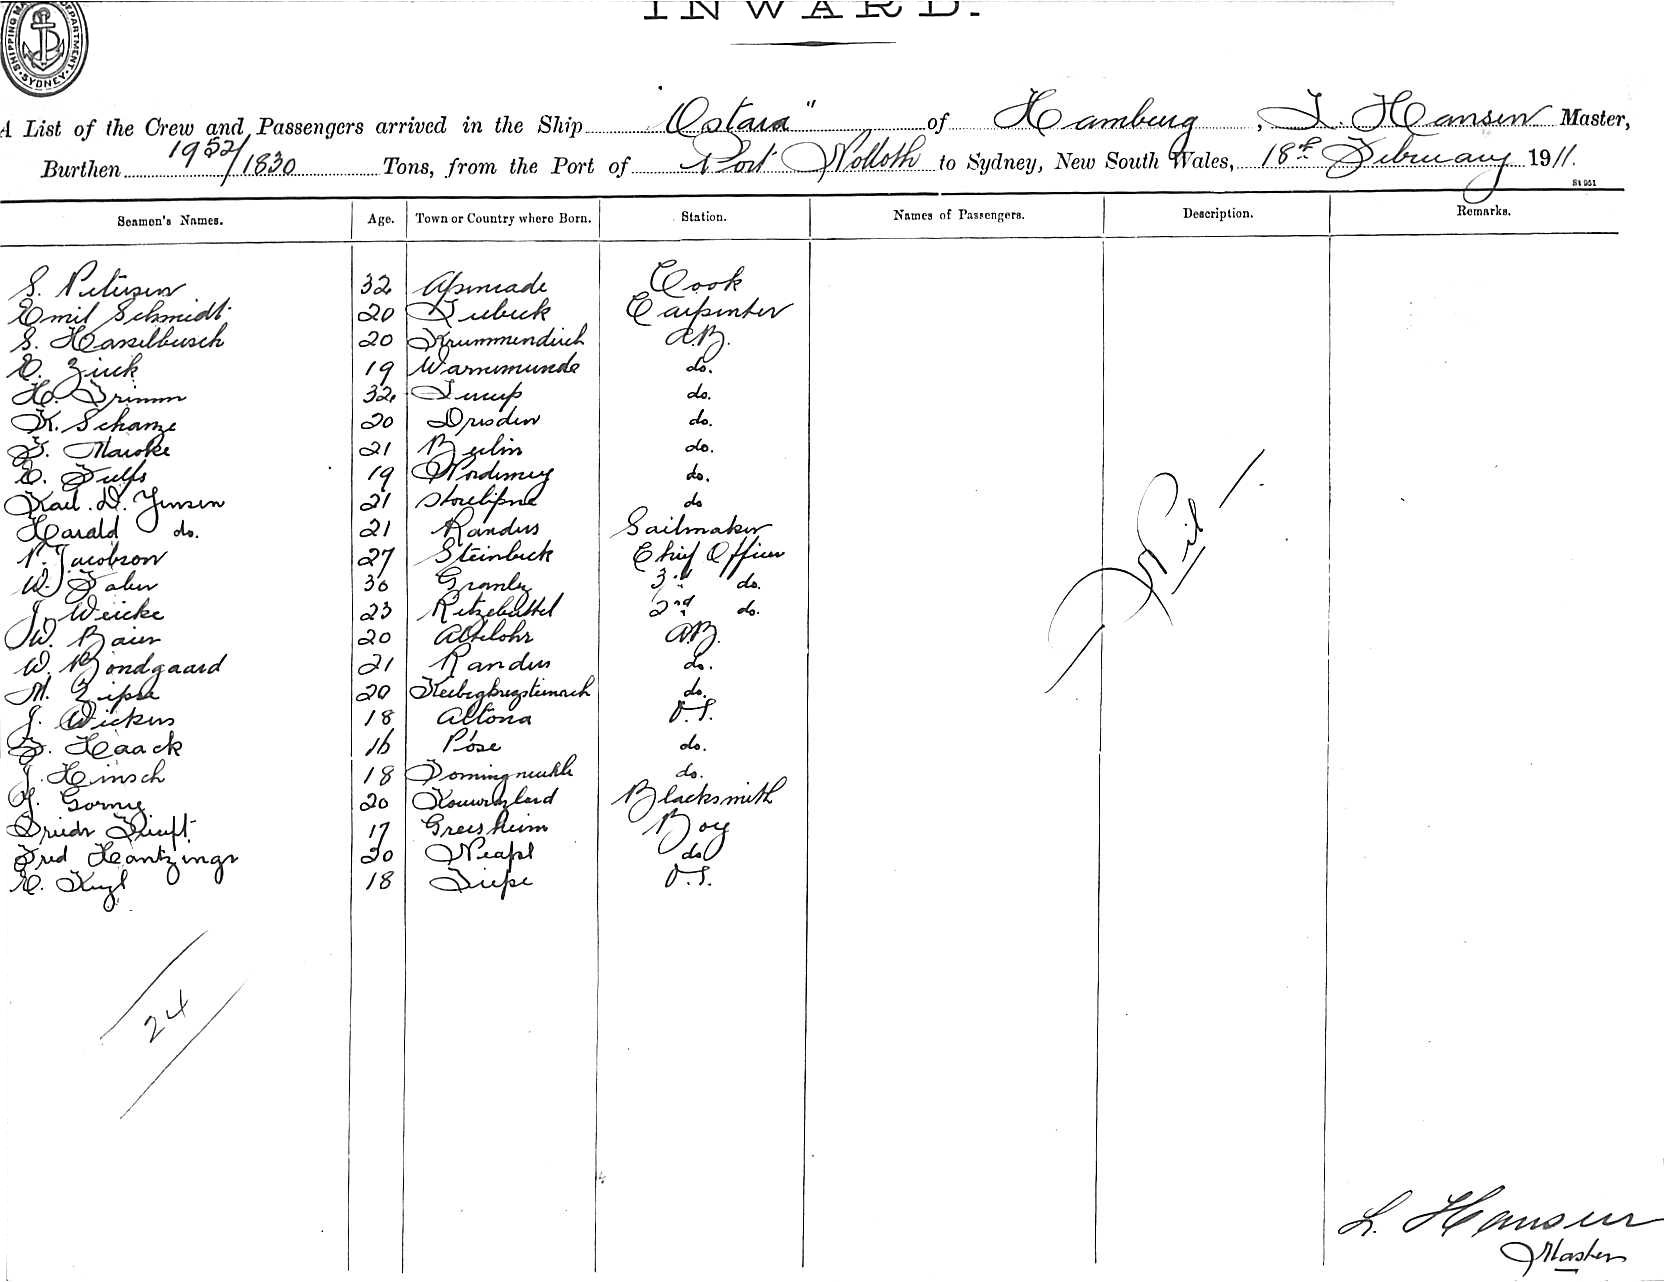 INWARD.
SHIPPING MA DEPARTMENT. SYDNEY.
A List of the Crew and Passengers arrived in the Ship "Ostara" of Hamburg, L. Hansen Master,
Burthen 1952/1830 Tons, from the Port of Port Nolloth to Sydney, New South Wales, 18th February 1911.
St 951
Seamen's Names. Age. Town or Country where Born. Station. Names of Passengers. Description. Remarks.
S. Petersen 32 Apenrade Cook
Emil Schmidt 20 Lubeck Carpenter
S. Hasselbusch 20 Krummendiek A.B.
E. Zink 19 Warnemunde do.
H. Grimm 32 do.
K. Schanze 20 Dresden do.
F. 21 Berlin do.
E. 19 Norderney do.
Karl. D. Jensen 21 do
Harald do. 21 Randers Sailmaker
P. Jacobson 27 Steinbeck Chief Officer
W. Faber 30 3rd do.
J. Weicke 23 Ritzebuttel 2nd do.
W. Baier 20 A.B.
W. Bondgaard 21 Randers do.
M. 20 do.
J. Wickers 18 Altona O.S.
F. Haack 16 Pose do.
J. Hinsch 18 do.
20 Blacksmith
Friedr 17 Greesheim Boy
Fred Hantzinger 20 Neapel do
E. 18 O.S.
Nil
24
L. Hansen
Master